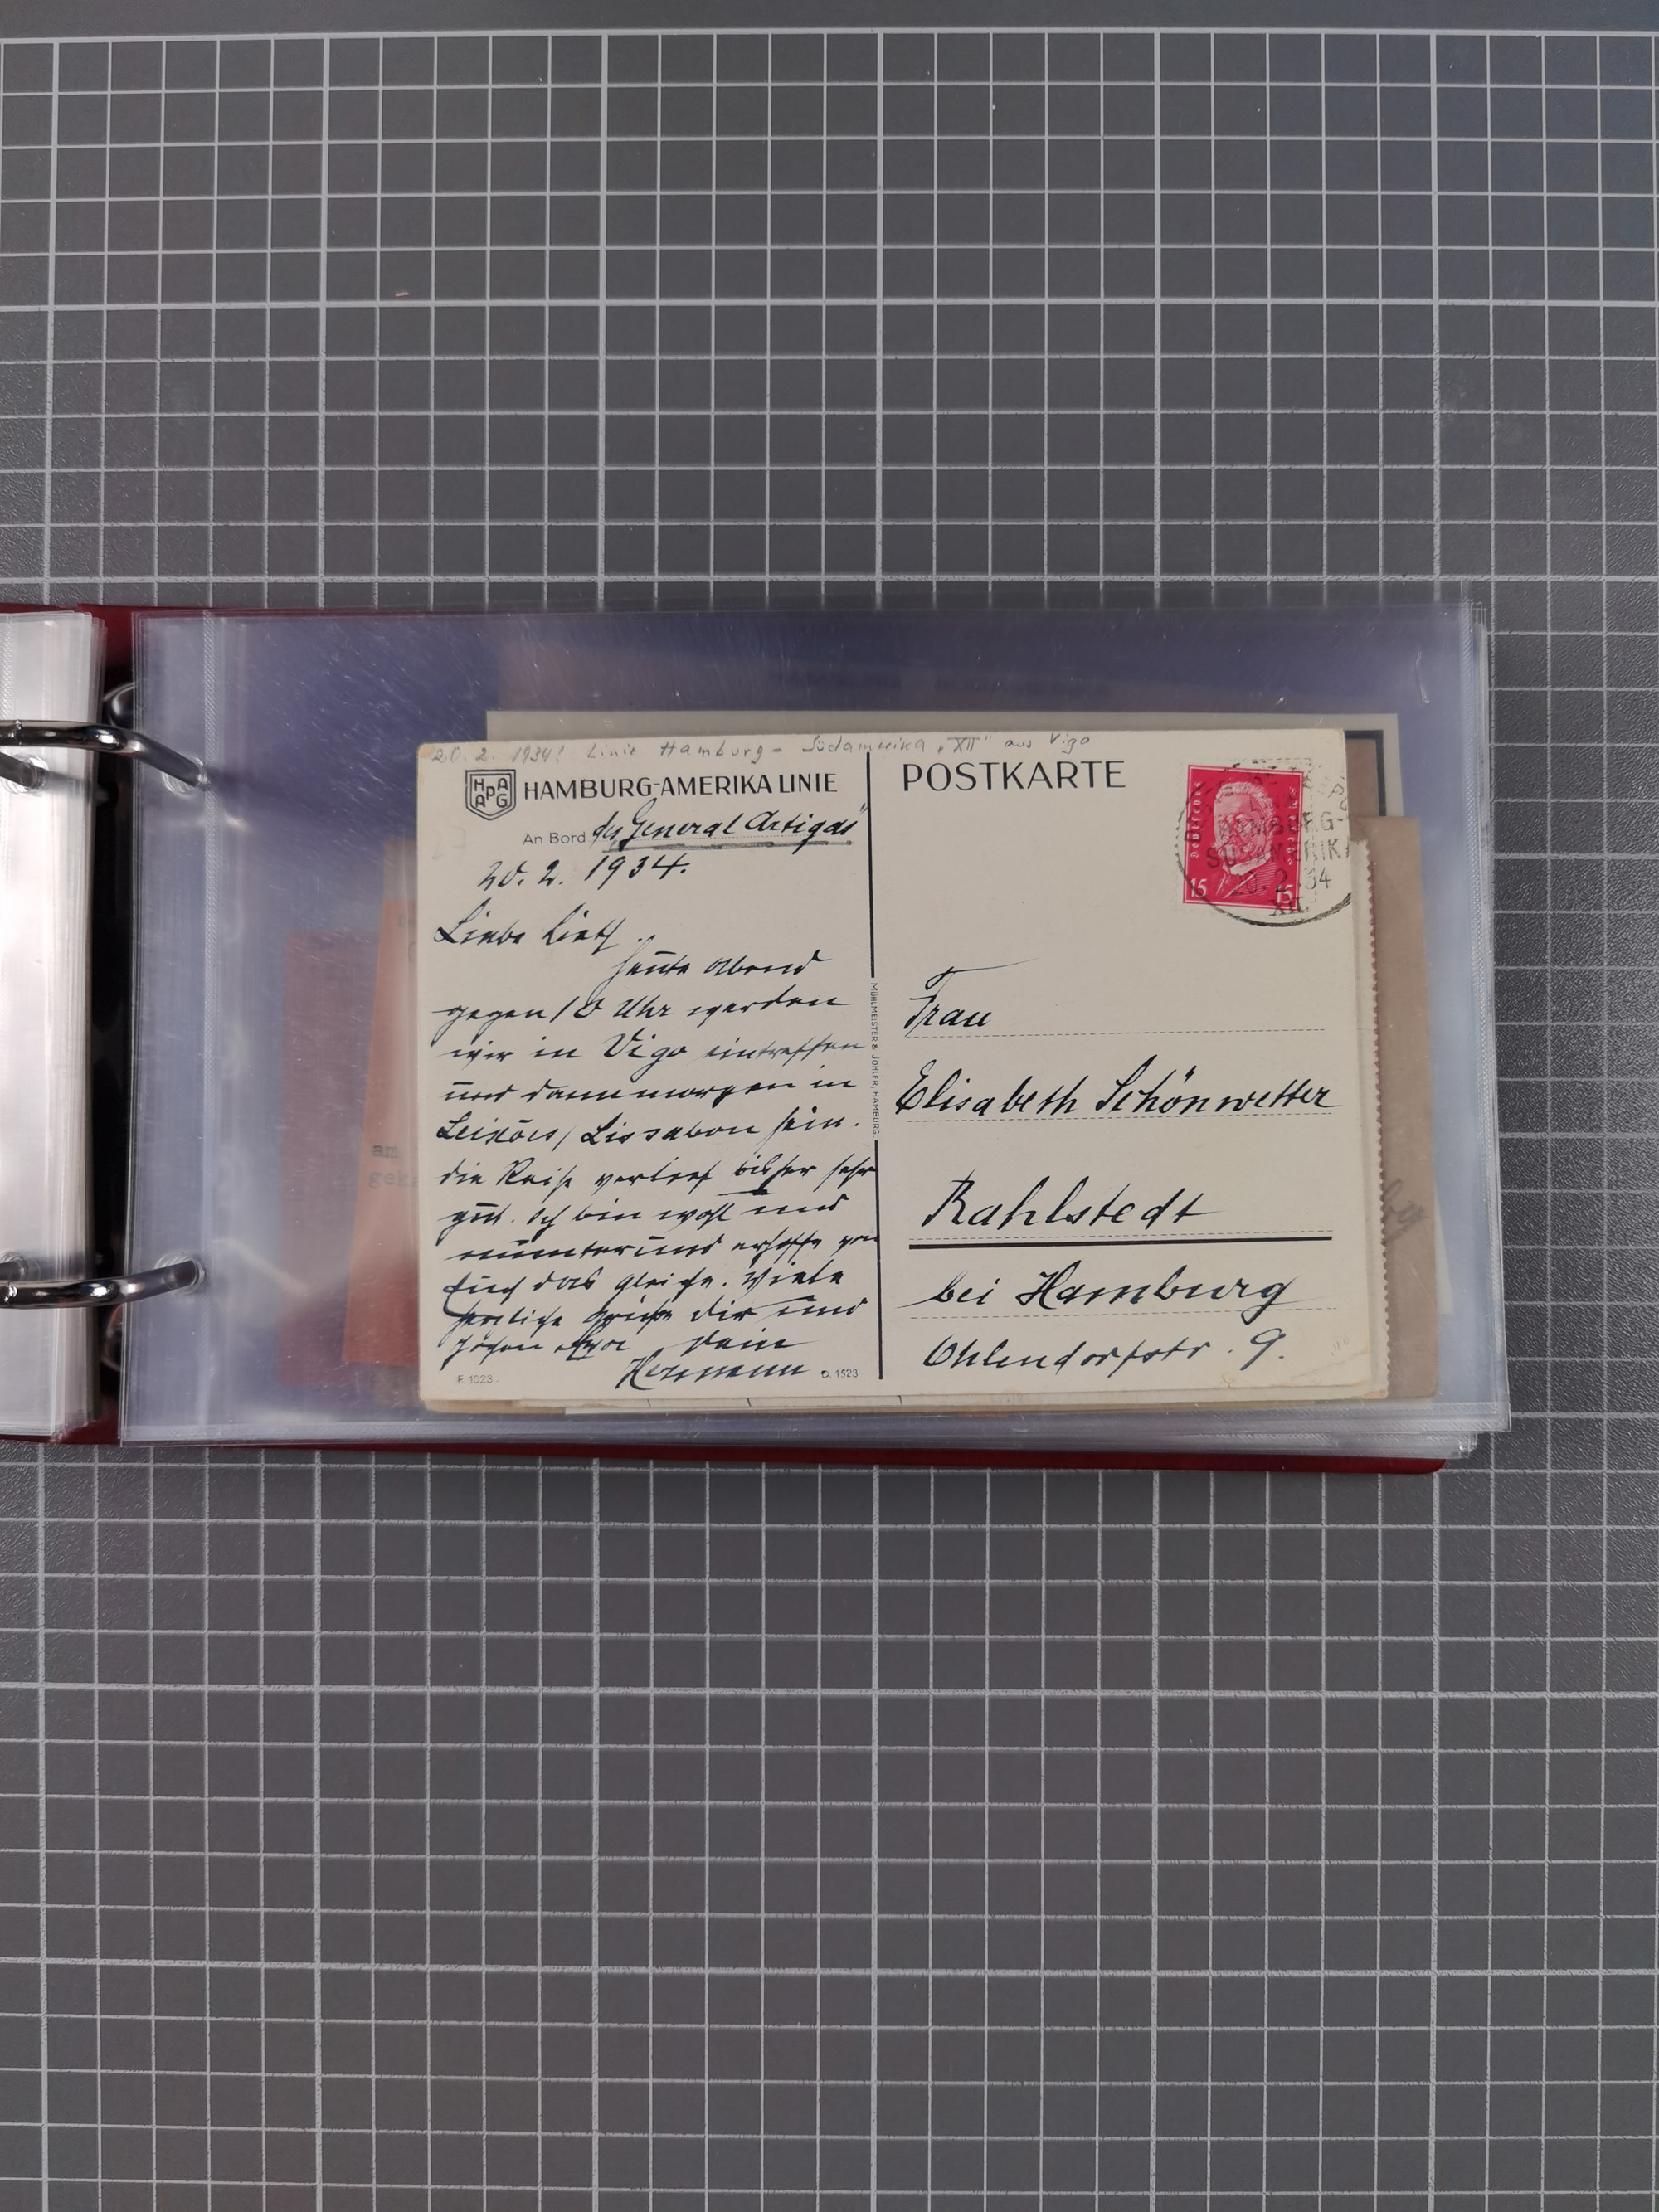 20.2.1934! Linie Hamburg - Südamerika „XII" aus Vigo
HAPAG
HAMBURG-AMERIKA LINIE
An Bord des „General Artigas"
20. 2. 1934.
Liebe Lieth
heute Abend
gegen 10 Uhr werden
wir in Vigo eintreffen
und dann morgen in
Leixões / Lissabon sein.
die Reise verlief bisher sehr
gut. Ich bin wohl und
munter und erhoffe von
Euch das gleiche. Viele
herzliche Grüße Dir und
Dein
Hermann
F. 1023.
D. 1523
MÜHLMEISTER & JOHLER, HAMBURG
POSTKARTE
15 15
HAMBURG-
SÜDAMERIKA
20.2.34
XII
Frau
Elisabeth Schönwetter
Rahlstedt
bei Hamburg
Ohlendorfstr. 9.